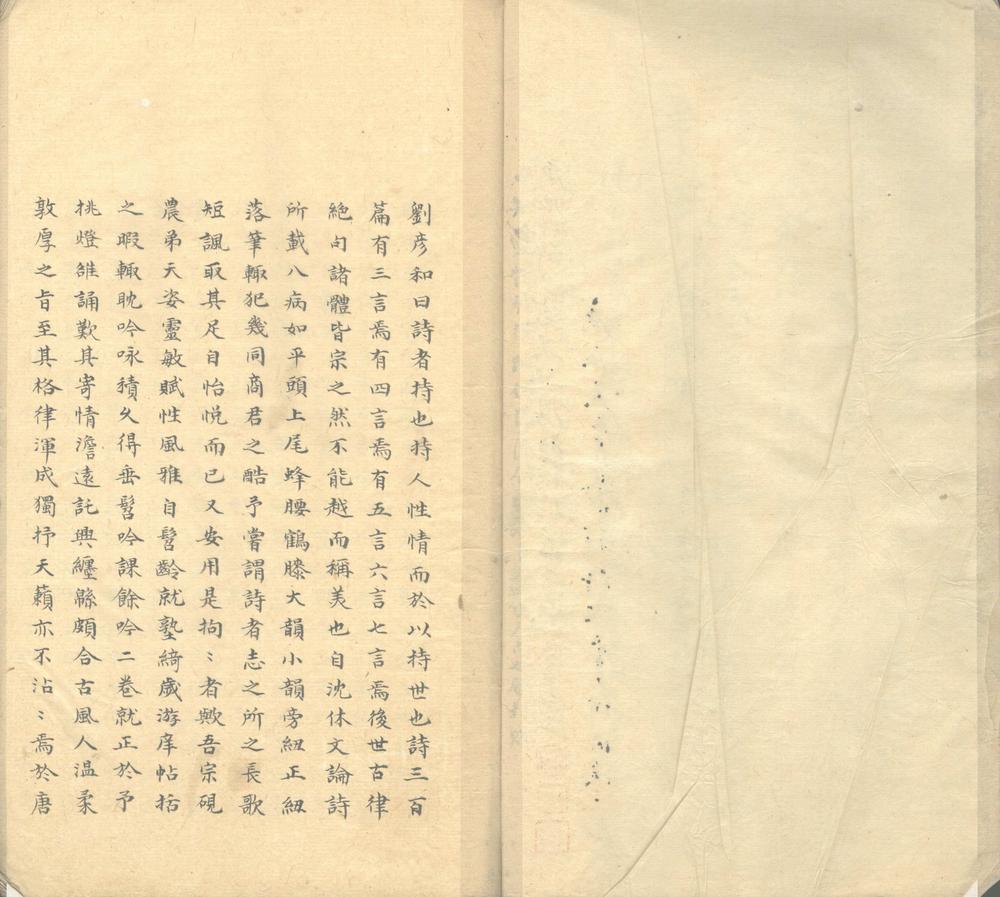 劉彥和曰詩者持也持人性情而於以持世也詩三百
篇有三言焉有四言焉有五言六言七言焉後世古律
絕句諸體皆宗之然不能越而稱美也自沈休文論詩
所載八病如平頭上尾蜂腰鶴膝大韻小韻旁紐正紐
落筆輙犯幾同商君之酷予嘗謂詩者志之所之長歌
短諷取其足自怡悅而已又安用是拘〻者歟吾宗硯
農弟天姿靈敏賦性風雅自髫齡就塾綺歲游庠帖括
之暇輙耽吟咏積久得垂髫吟課餘吟二卷就正於予
挑燈雒誦歎其寄情澹遠託興纏緜頗合古風人温柔
敦厚之旨至其格律渾成獨抒天籟亦不沾〻焉於唐